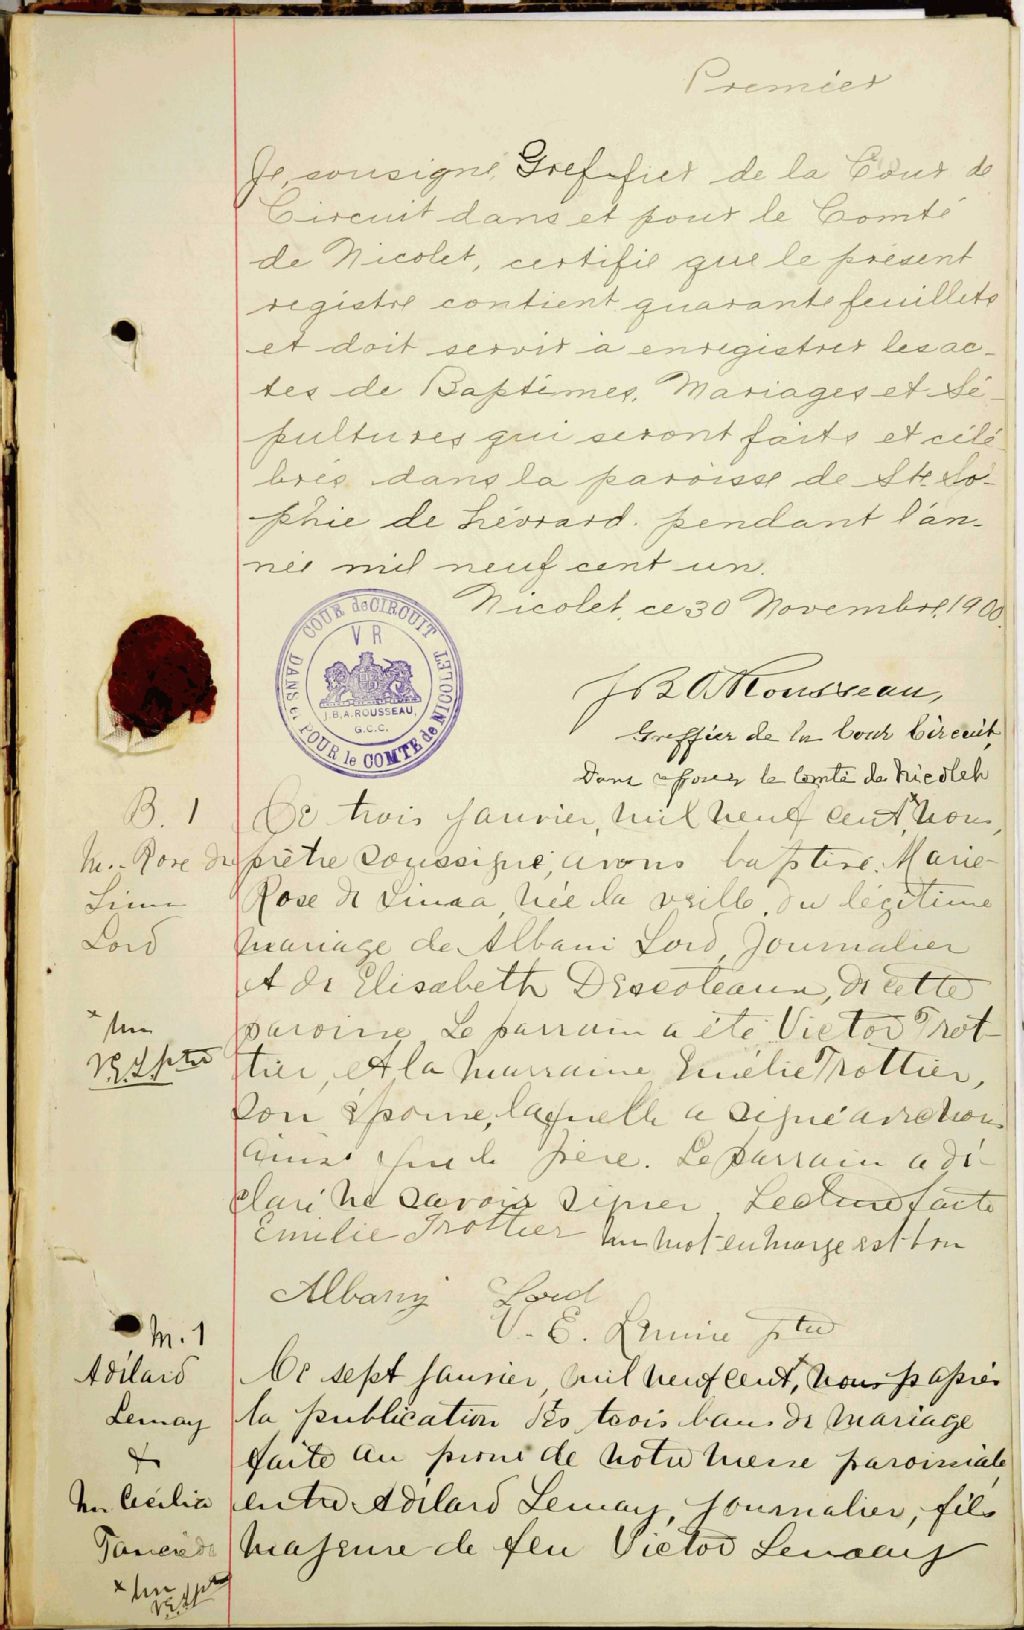 Premier
Je, soussigné, Greffier de la Cour de
Circuit dans et pour le Comté
de Nicolet, certifie que le présent
registre contient quarante feuillets
et doit servir à enregistrer les ac-
tes de Baptêmes, Mariages et Sé-
pultures qui seront faits et célé
brés dans la paroisse de Ste So-
phie de Lévrard pendant l'an-
née mil neuf cent un.
Nicolet, ce 30 Novembre, 1900.
COUR de CIRCUIT
DANS et POUR le COMTE de NICOLET
V R
J.B.A. ROUSSEAU,
G.C.C.
J B A Rousseau,
Greffier de la Cour Circuit,
Dans et pour le Comté de Nicolet
B. 1
M.. Rose de
Lima
Lord
x un
V.E.L. ptre
Ce trois Janvier, mil neuf cent x, nous,
prêtre soussigné, avons baptisé Marie-
Rose de Lima, née la veille, du légitime
mariage de Albani Lord, Journalier
et de Elisabeth Descoteaux, de cette
paroisse. Le parrain a été Victor Trot-
tier, et la marraine Emélie Trottier,
son épouse, laquelle a signé avec nous
ainsi que le père. Le parrain a dé-
claré ne savoir signer. Lecture faite
Emilie Trottier un mot en marge est bon
Albany Lord
V. E. Lemire ptre
M. 1
Adélard
Lemay
&
M. Cécilia
Tancrède
x un
V.E.L ptre
Ce sept Janvier, mil neuf cent x, nous p après
la publication des trois bans de mariage
faite au prône de notre messe paroissiale
entre Adélard Lemay, Journalier, fils
majeure de feu Victor Lemay